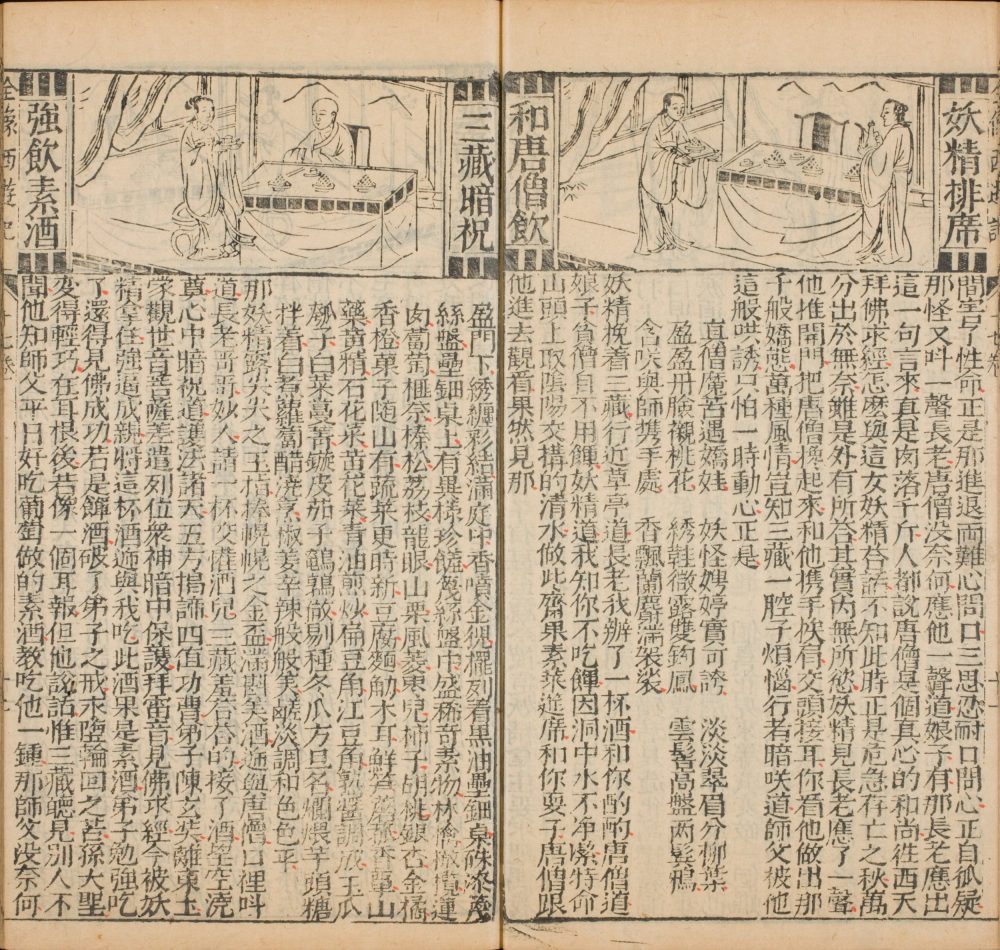 妖精排席
和唐僧飲
間害了性命正是那進退兩難心問口三思忍耐口問心正自狐疑
那怪又叫一聲長老唐僧没奈何應他一聲道娘子有那長老應出
這一句言來真是肉落千斤人都說唐僧是個真心的和尚徃西天
拜佛求經怎麽與這女妖精答話不知此時正是危急存亡之秋萬
分出於無奈雖是外有所答其實內無所慾妖精見長老應了一聲
他推開門把唐僧攙起來和他携手挨背交頭接耳你看他做出那
千般嬌態萬種風情豈知三藏一腔子煩惱行者暗咲道師父被他
這般哄誘只怕一時動心正是
真僧魔苦遇嬌娃 妖怪娉婷實可誇 淡淡翠眉分柳葉
盈盈丹臉襯桃花 綉鞋微露雙鈎鳳 雲髻高盤两鬢鴉
含咲與師携手處 香飄蘭麝滿袈裟
妖精挽着三藏行近草亭道長老我辦了一杯酒和你酌酌唐僧道
娘子貧僧自不用葷妖精道我知你不吃葷因洞中水不净潔特命
山頭上取陰陽交媾的清水做此齋果素菜筵席和你耍子唐僧跟
他進去觀看果然見那
三藏暗祝
強飲素酒
盈門下綉纏彩結滿庭中香噴金猊擺列着黑油壘鈿桌硃漆篾
絲盤壘鈿桌上有異樣珍饈篾絲盤中盛稀奇素物林檎橄欖蓮
肉葡萄榧柰榛松荔枝龍眼山栗風菱棗兒柿子胡桃銀杏金橘
香橙菓子随山有蔬菜更時新豆腐麵觔木耳鮮笋蘑菇香蕈山
藥黃精石花菜黃花菜青油煎炒扁豆角江豆角熟醬調成王瓜
瓠子白菜蔓菁鏇皮茄子鵪鶉做剔種冬瓜方旦名爛煨芋頭糖
拌着白煮蘿蔔醋澆烹椒姜辛辣般般美醎淡調和色色平
那妖精露尖尖之玉指捧幌幌之金盃滿斟美酒遞與唐僧口裡叫
道長老哥哥妙人請一杯交懽酒兒三藏羞答答的接了酒望空澆
奠心中暗祝道護法諸天五方揭諦四值功曹弟子陳玄奘離東土
蒙觀世音菩薩差遣列位衆神暗中保護拜雷音見佛求經今被妖
精拿住強逼成親將這杯酒遞與我吃此酒果是素酒弟子勉強吃
了還得見佛成功若是葷酒破了弟子之戒永墮輪回之苦孫大聖
变得輕巧在耳根後若像一個耳報但他說話惟三藏聽見別人不
聞他知師父平日好吃葡萄做的素酒教吃他一鍾那師父没奈何